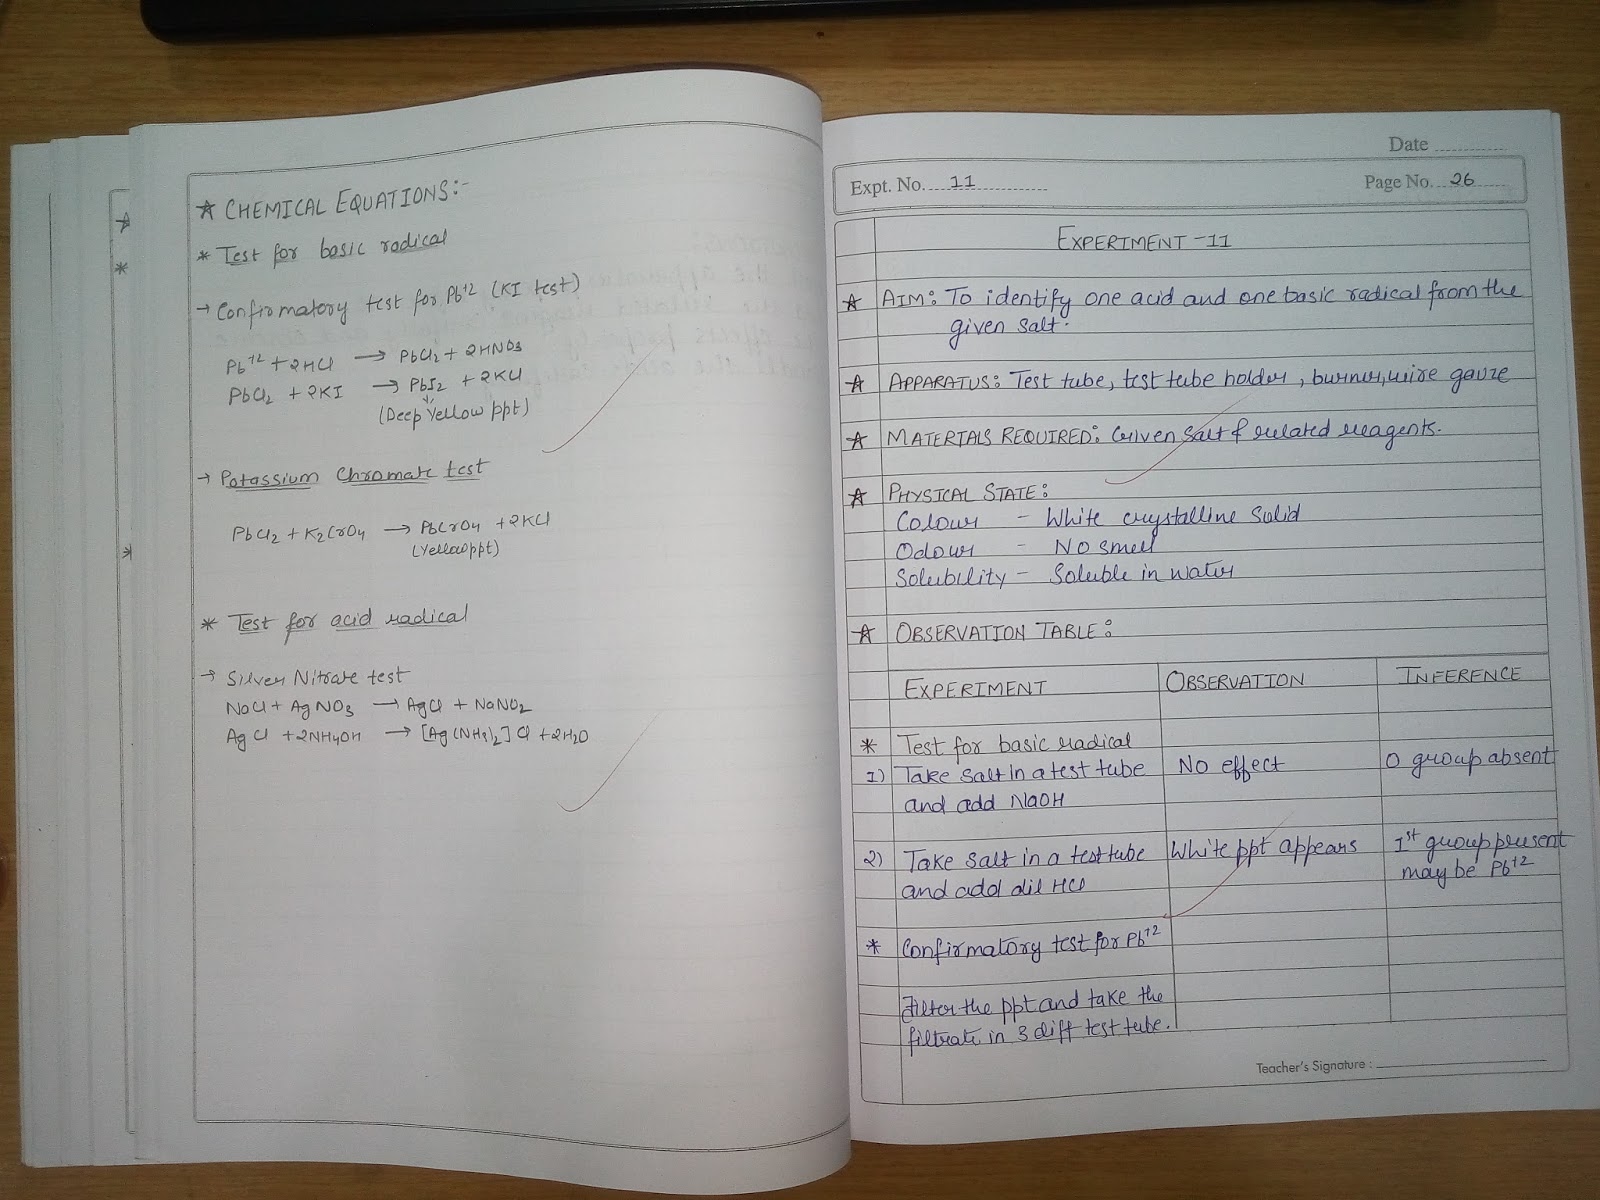 ☆ CHEMICAL EQUATIONS:-
* Test for basic radical
→ Confirmatory test for Pb+2 (KI test)
Pb+2 + 2HCl → PbCl2 + 2HNO3
PbCl2 + 2KI → PbI2 + 2KCl
(Deep Yellow ppt)
→ Potassium Chromate test
PbCl2 + K2CrO4 → PbCrO4 + 2KCl
(Yellow ppt)
* Test for acid radical
→ Silver Nitrate test
NaCl + AgNO3 → AgCl + NaNO2
AgCl + 2NH4OH → [Ag(NH3)2]Cl + 2H2O
Date
Expt. No. 11 Page No. 26
EXPERIMENT-11
☆ AIM: To identify one acid and one basic radical from the
given salt.
☆ APPARATUS: Test tube, test tube holder, burner, wire gauze
☆ MATERIALS REQUIRED: Given salt & related reagents.
☆ PHYSICAL STATE:
Colour - White crystalline solid
Odour - No smell
Solubility - Soluble in water
☆ OBSERVATION TABLE:
EXPERIMENT OBSERVATION INFERENCE
* Test for basic radical
1) Take salt in a test tube No effect O group absent
and add NaOH
2) Take salt in a test tube White ppt appears 1st group present
and add dil HCl may be Pb+2
* Confirmatory test for Pb+2
Filter the ppt and take the
filtrate in 3 diff test tube.
Teacher's Signature :